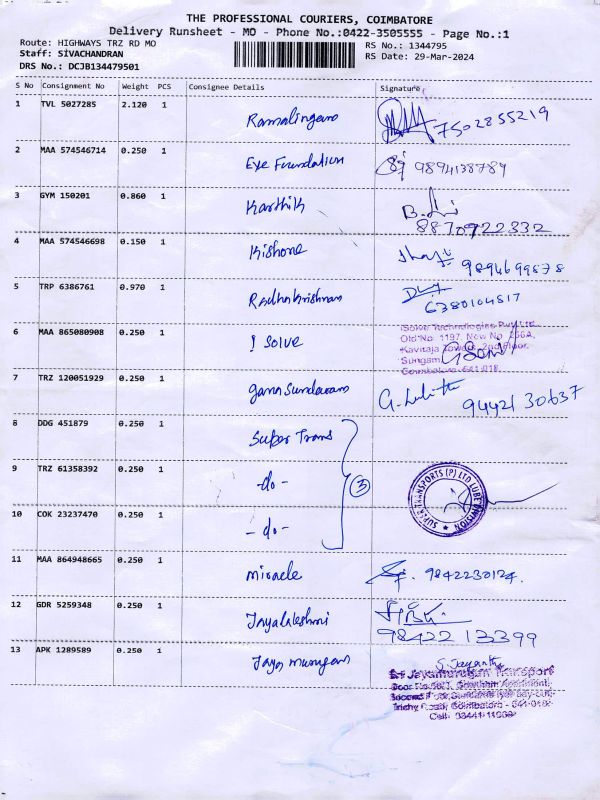 THE PROFESSIONAL COURIERS, COIMBATORE
Delivery Runsheet - MO - Phone No.:0422-3505555 - Page No.:1
Route: HIGHWAYS TRZ RD MO
RS No.: 1344795
Staff: SIVACHANDRAN
RS Date: 29-Mar-2024
DRS No.: DCJB134479501
S No Consignment No Weight PCS Consignee Details Signature
1 TVL 5027285 2.120 1 Ramalingam 7502855219
2 MAA 574546714 0.250 1 Eye Foundation 9894138789
3 GYM 150201 0.860 1 Karthik 8870922332
4 MAA 574546698 0.150 1 Kishore 9894699878
5 TRP 6386761 0.970 1 Radhakrishnan 6380104517
6 MAA 865080908 0.250 1 I Solve
iSolve Technologies Pvt Ltd
Old No. 1197, New No
Kavitaja Towers, 2nd Floor,
Sungam,
Coimbatore - 641 018.
7 TRZ 120051929 0.250 1 9442130637
8 DDG 451879 0.250 1 Super Trans
9 TRZ 61358392 0.250 1 -do- 3
SUPER TRANSPORTS (P) LTD LUBE DIVISION
10 COK 23237470 0.250 1 -do-
11 MAA 864948665 0.250 1 Miracle 9842230124.
12 GDR 5259348 0.250 1 Jayalakshmi 9842213399
13 APK 1289589 0.250 1 Jaya murugan S. Jayantha
Sri Jayamurugan Transport
Coimbatore - 641 018
Cell: